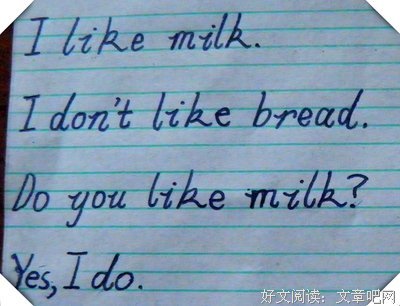 I like milk.
I don't like bread.
Do you like milk?
Yes, I do.
好文阅读：文章吧网